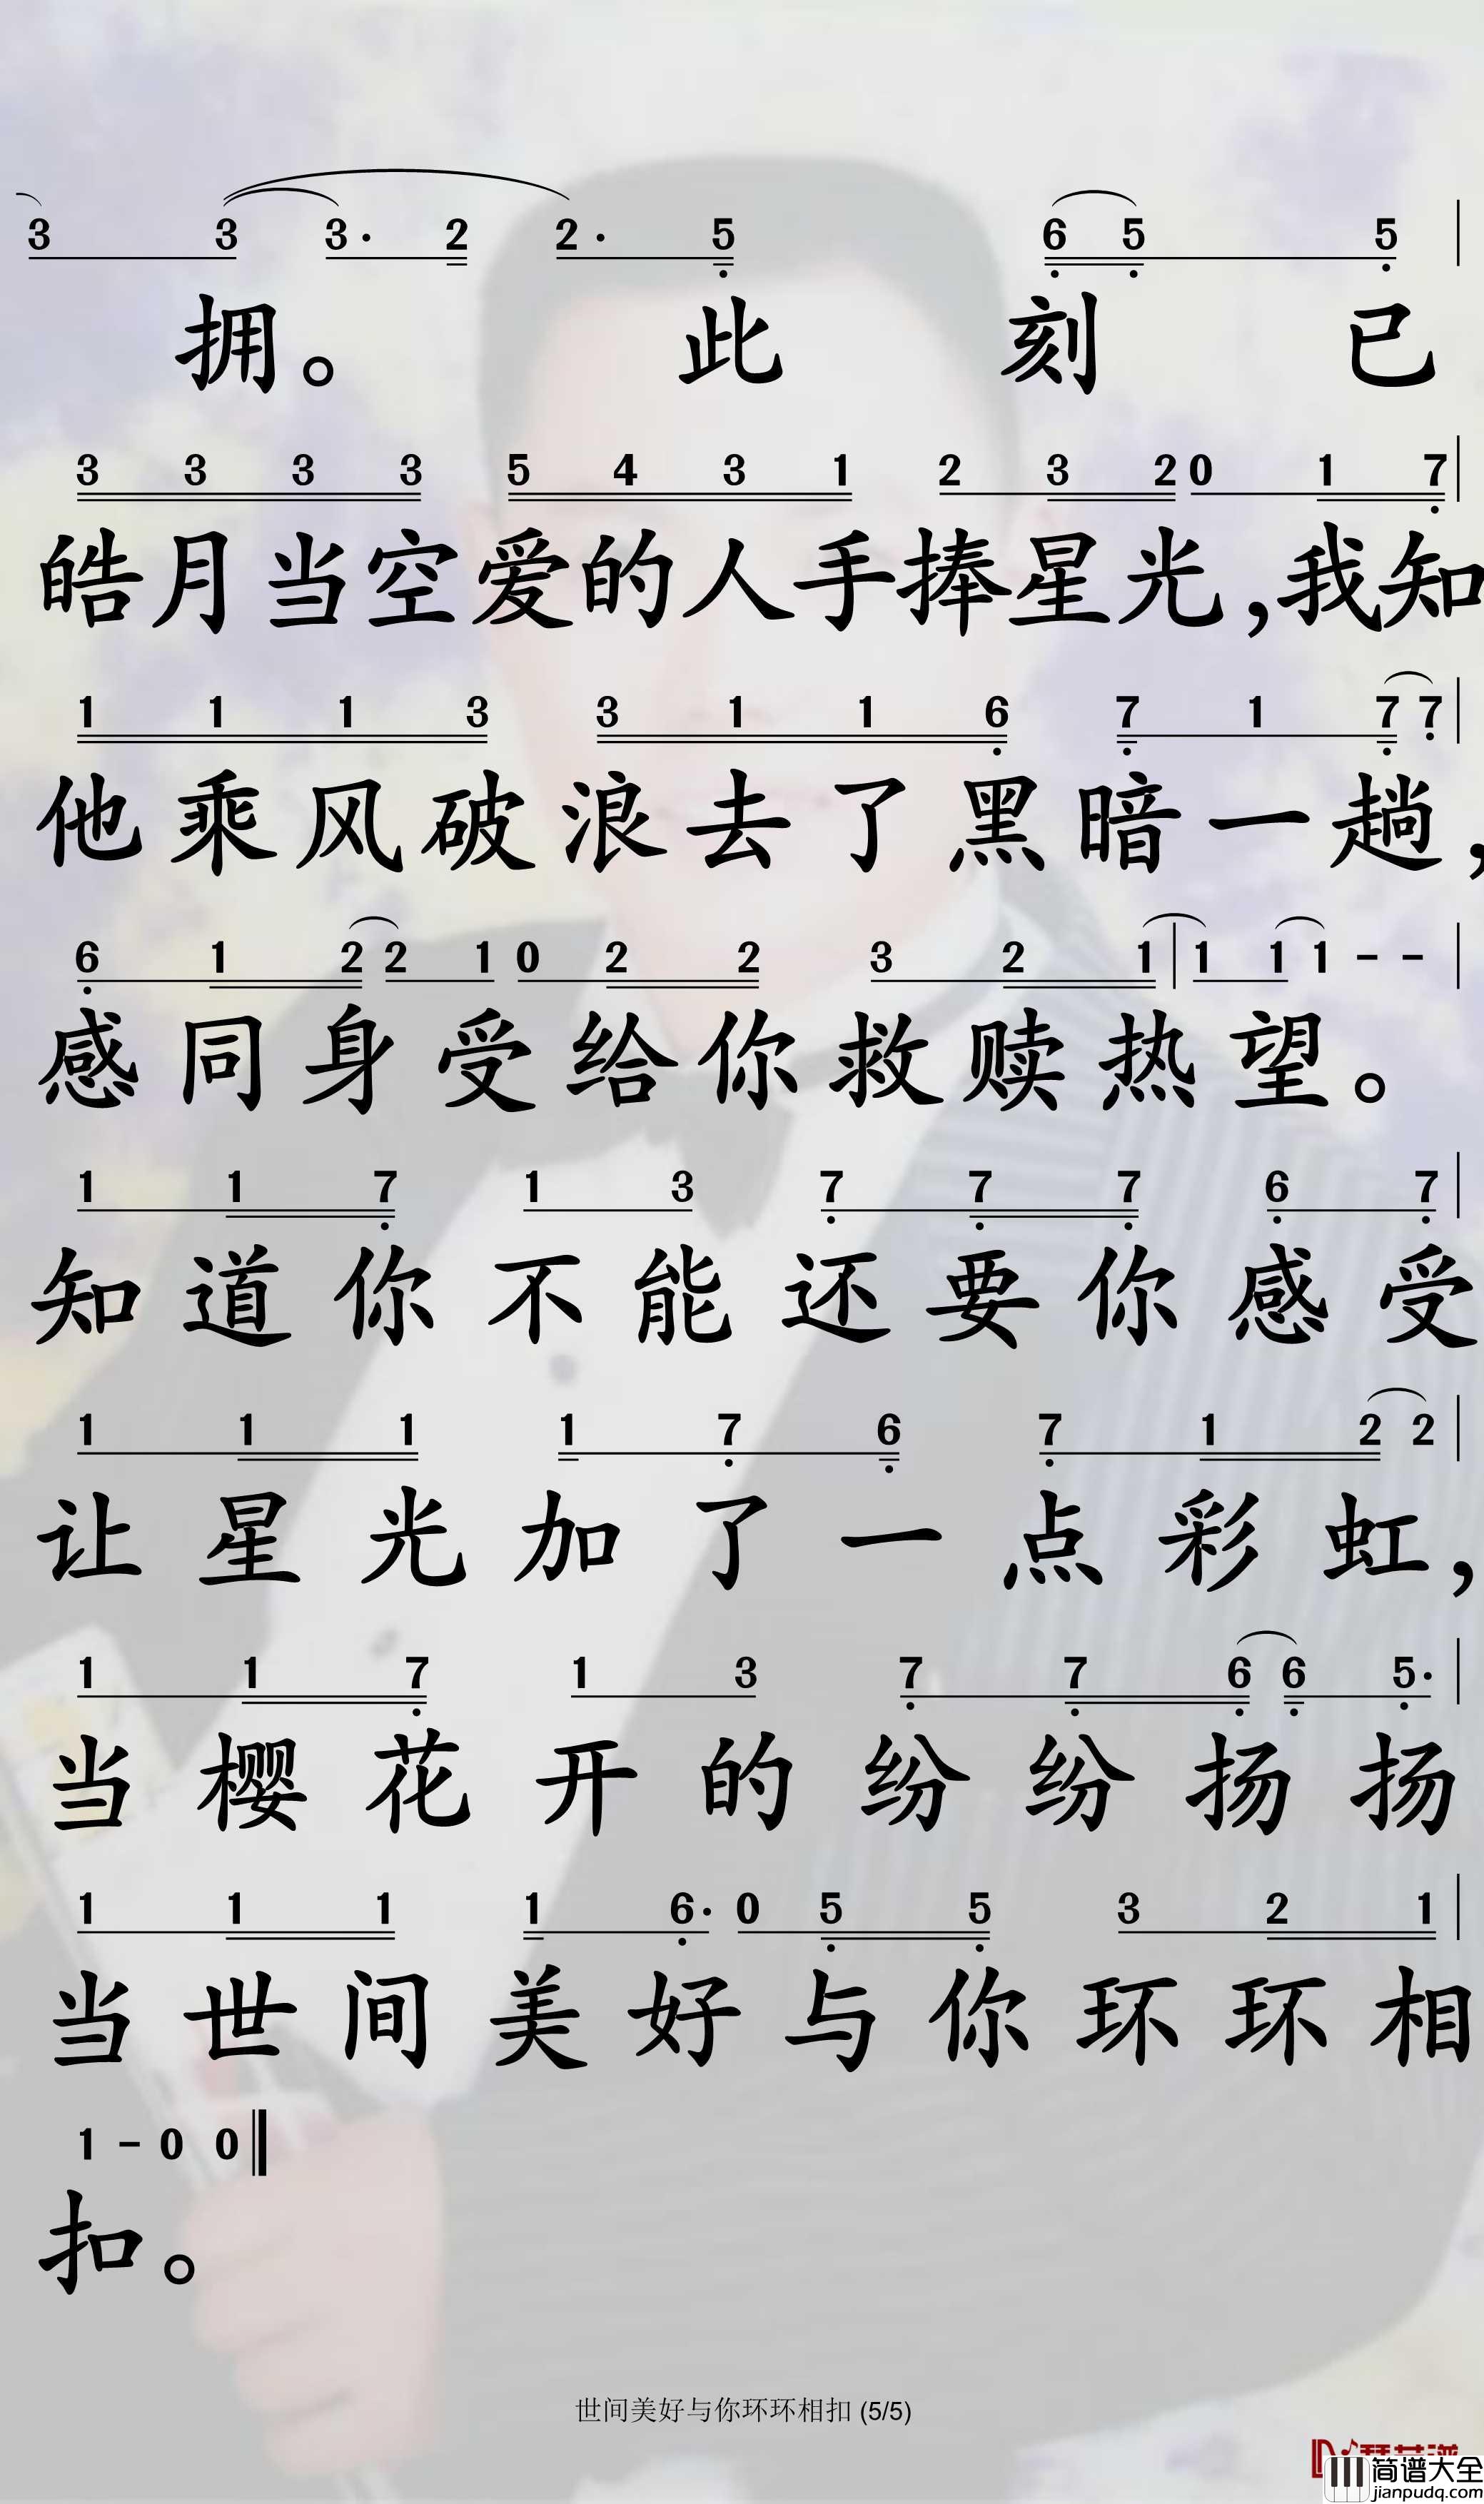 3 3 3· 2 2· 5 6 5 5
拥。 此 刻 已
3 3 3 3 5 4 3 1 2 3 2 0 1 7
皓月当空爱的人手捧星光,我知
1 1 1 3 3 1 1 6 7 1 7 7
他乘风破浪去了黑暗一趟,
6 1 2 2 1 0 2 2 3 2 1 | 1 1 1 - -
感同身受给你救赎热望。
1 1 7 1 3 7 7 7 6 7
知道你不能还要你感受
1 1 1 1 7 6 7 1 2 2
让星光加了一点彩虹,
1 1 7 1 3 7 7 6 6 5·
当樱花开的纷纷扬扬
1 1 1 1 6· 0 5 5 3 2 1
当世间美好与你环环相
1 - 0 0
扣。
世间美好与你环环相扣 (5/5)
简谱大全
jianpudq.com